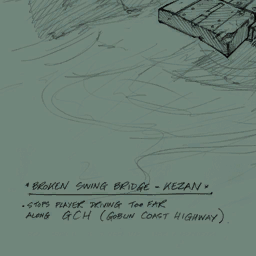 "BROKEN SWING BRIDGE - KEZAN"
. STOPS PLAYER DRIVING TOO FAR
ALONG GCH (GOBLIN COAST HIGHWAY)